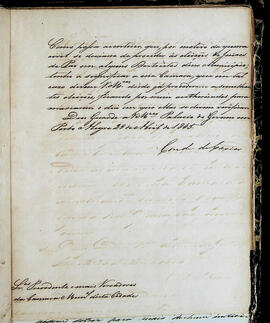 Como possa acontecer que por motivo da guerra
civil se deixasse de proceder às eleições de Juizes
de Paz em alguns Districtos desse Municipio,
tenho a significar a essa Camara, que em tal
caso devem V Mces desde já proceder a semelhan
tes eleições, ficando por mim authorisados para
marcarem o dia em que ellas se devem verificar.
Deos Guarde a V Mces Palacio do Governo em
Porto Alegre 29 de Abril de 1845.
Conde de Caxias
Snres Presidente e mais Vereadores
da Camara Munal desta Cidade